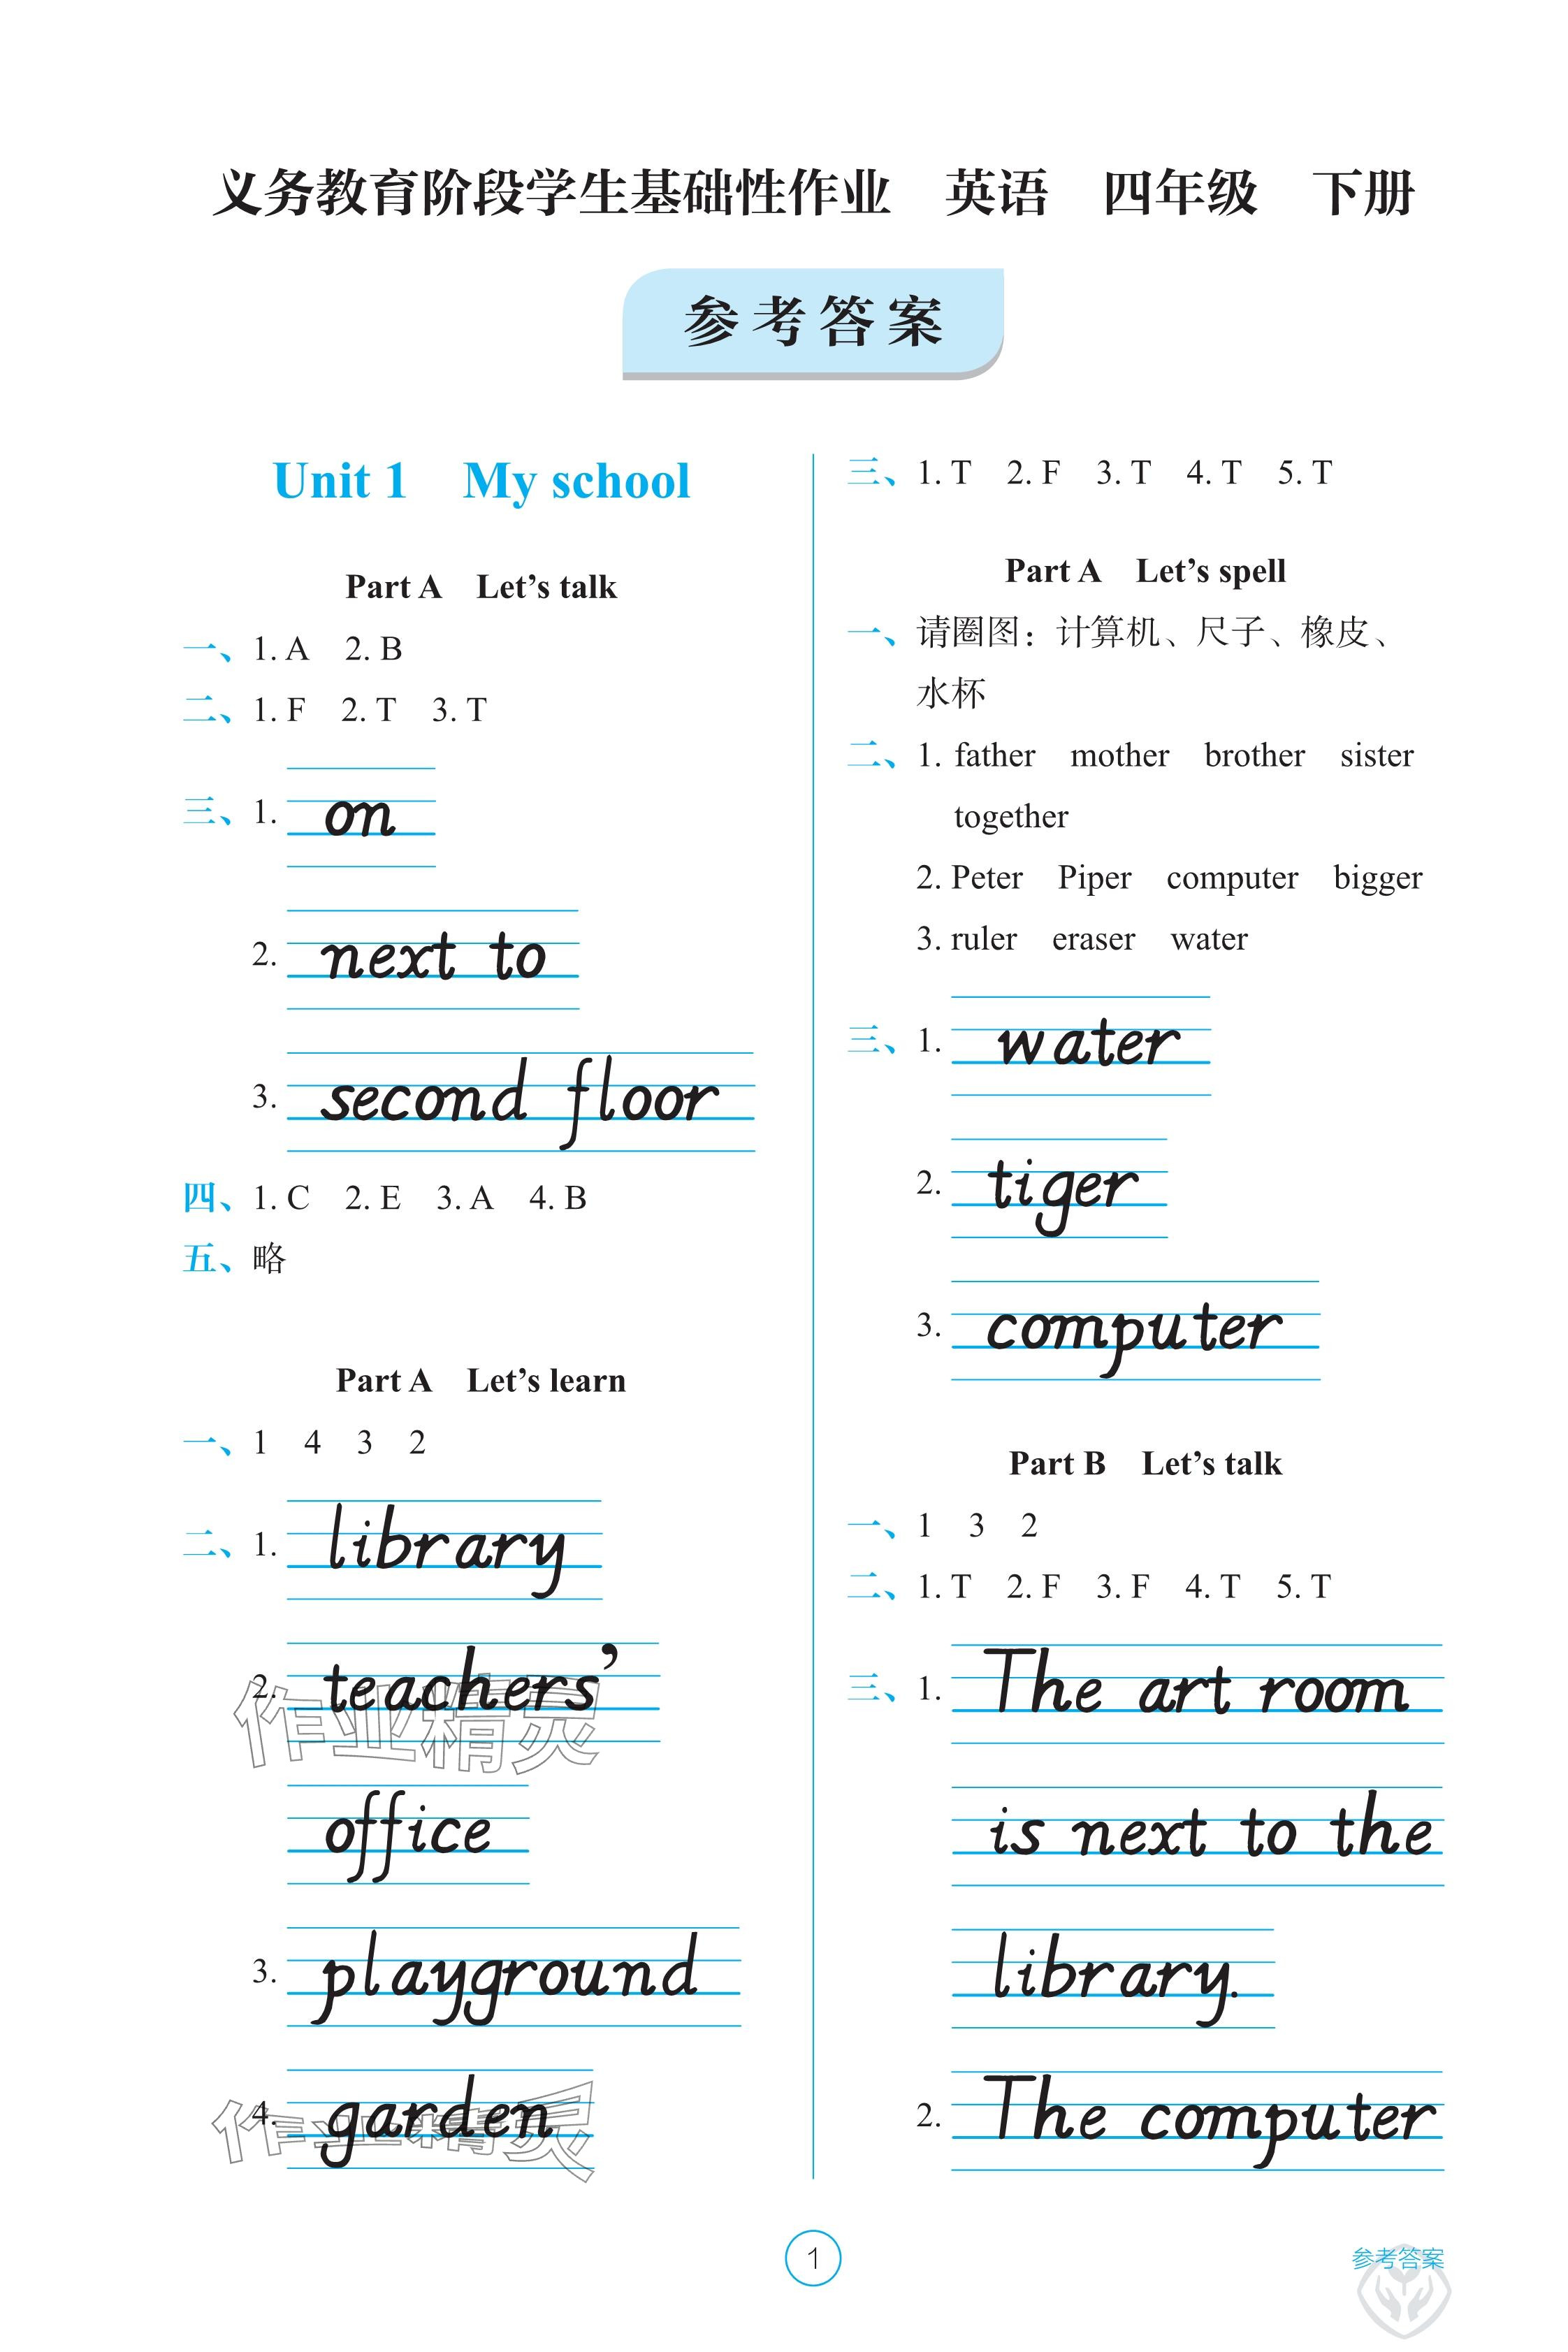 义务教育阶段学生基础性作业 英语 四年级 下册
参考答案
Unit 1 My school
Part A Let’s talk
一、1. A 2. B
二、1. F 2. T 3. T
三、1. on
2. next to
3. second floor
四、1. C 2. E 3. A 4. B
五、略
Part A Let’s learn
一、1 4 3 2
二、1. library
2. teachers’
office
3. playground
4. garden
三、1. T 2. F 3. T 4. T 5. T
Part A Let’s spell
一、请圈图：计算机、尺子、橡皮、
水杯
二、1. father mother brother sister
together
2. Peter Piper computer bigger
3. ruler eraser water
三、1. water
2. tiger
3. computer
Part B Let’s talk
一、1 3 2
二、1. T 2. F 3. F 4. T 5. T
三、1. The art room
is next to the
library.
2. The computer
作业精灵
作业精灵
1
参考答案